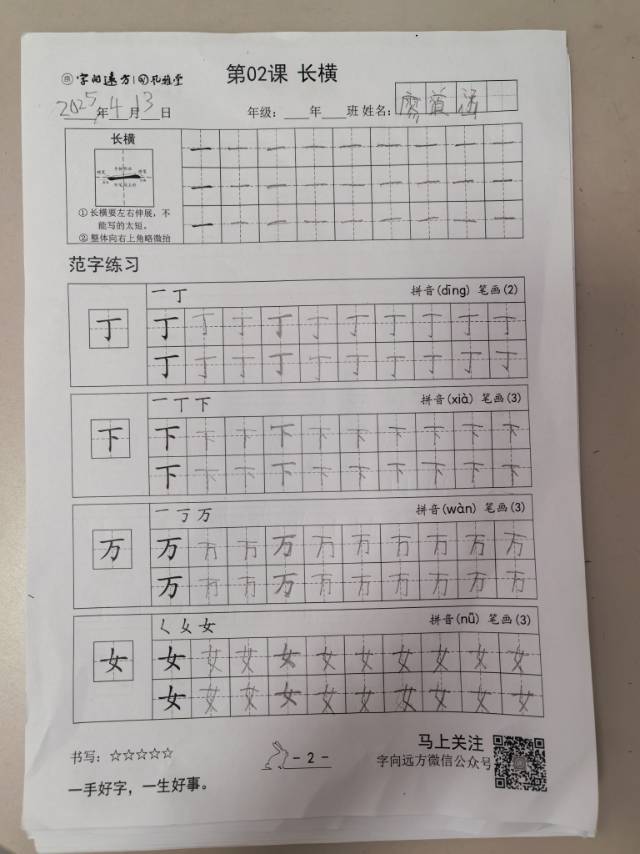 字向远方 孔雅堂 第02课 长横
2025年4月13日 年级：___年___班 姓名：廖
长横
①长横要左右伸展，不
能写的太短。
②整体向右上角略微抬
范字练习
一丁 拼音(dīng) 笔画(2)
丁 丁 丁 丁 丁 丁 丁 丁 丁 丁 丁
丁 丁 丁 丁 丁 丁 丁 丁 丁 丁
一丅下 拼音(xià) 笔画(3)
下 下 下 下 下 下 下 下 下 下 下
下 下 下 下 下 下 下 下 下 下
一丂万 拼音(wàn) 笔画(3)
万 万 万 万 万 万 万 万 万 万 万
万 万 万 万 万 万 万 万 万 万
𡿨 女 女 拼音(nǚ) 笔画(3)
女 女 女 女 女 女 女 女 女 女 女
女 女 女 女 女 女 女 女 女 女
书写：☆☆☆☆☆ - 2 - 马上关注
字向远方微信公众号
一手好字，一生好事。